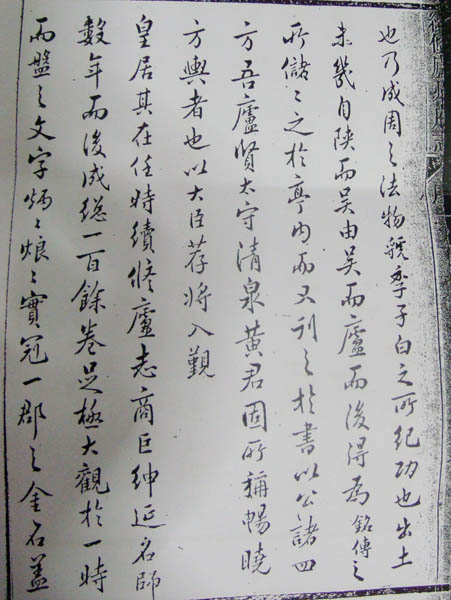 也乃成周之法物虢季子白之所紀功也出土
未幾自陝而吴由吴而廬而後得為銘傳之
所儲儲之於亭內而又刊之於書以公諸四
方吾廬賢太守清泉黃君固所稱暢曉
方輿者也以大臣荐將入覲
皇居其在任時續修廬志商巨紳延名師
數年而後成總一百餘卷足極大觀於一時
而盤之文字炳炳烺烺實冠一郡之金石蓋